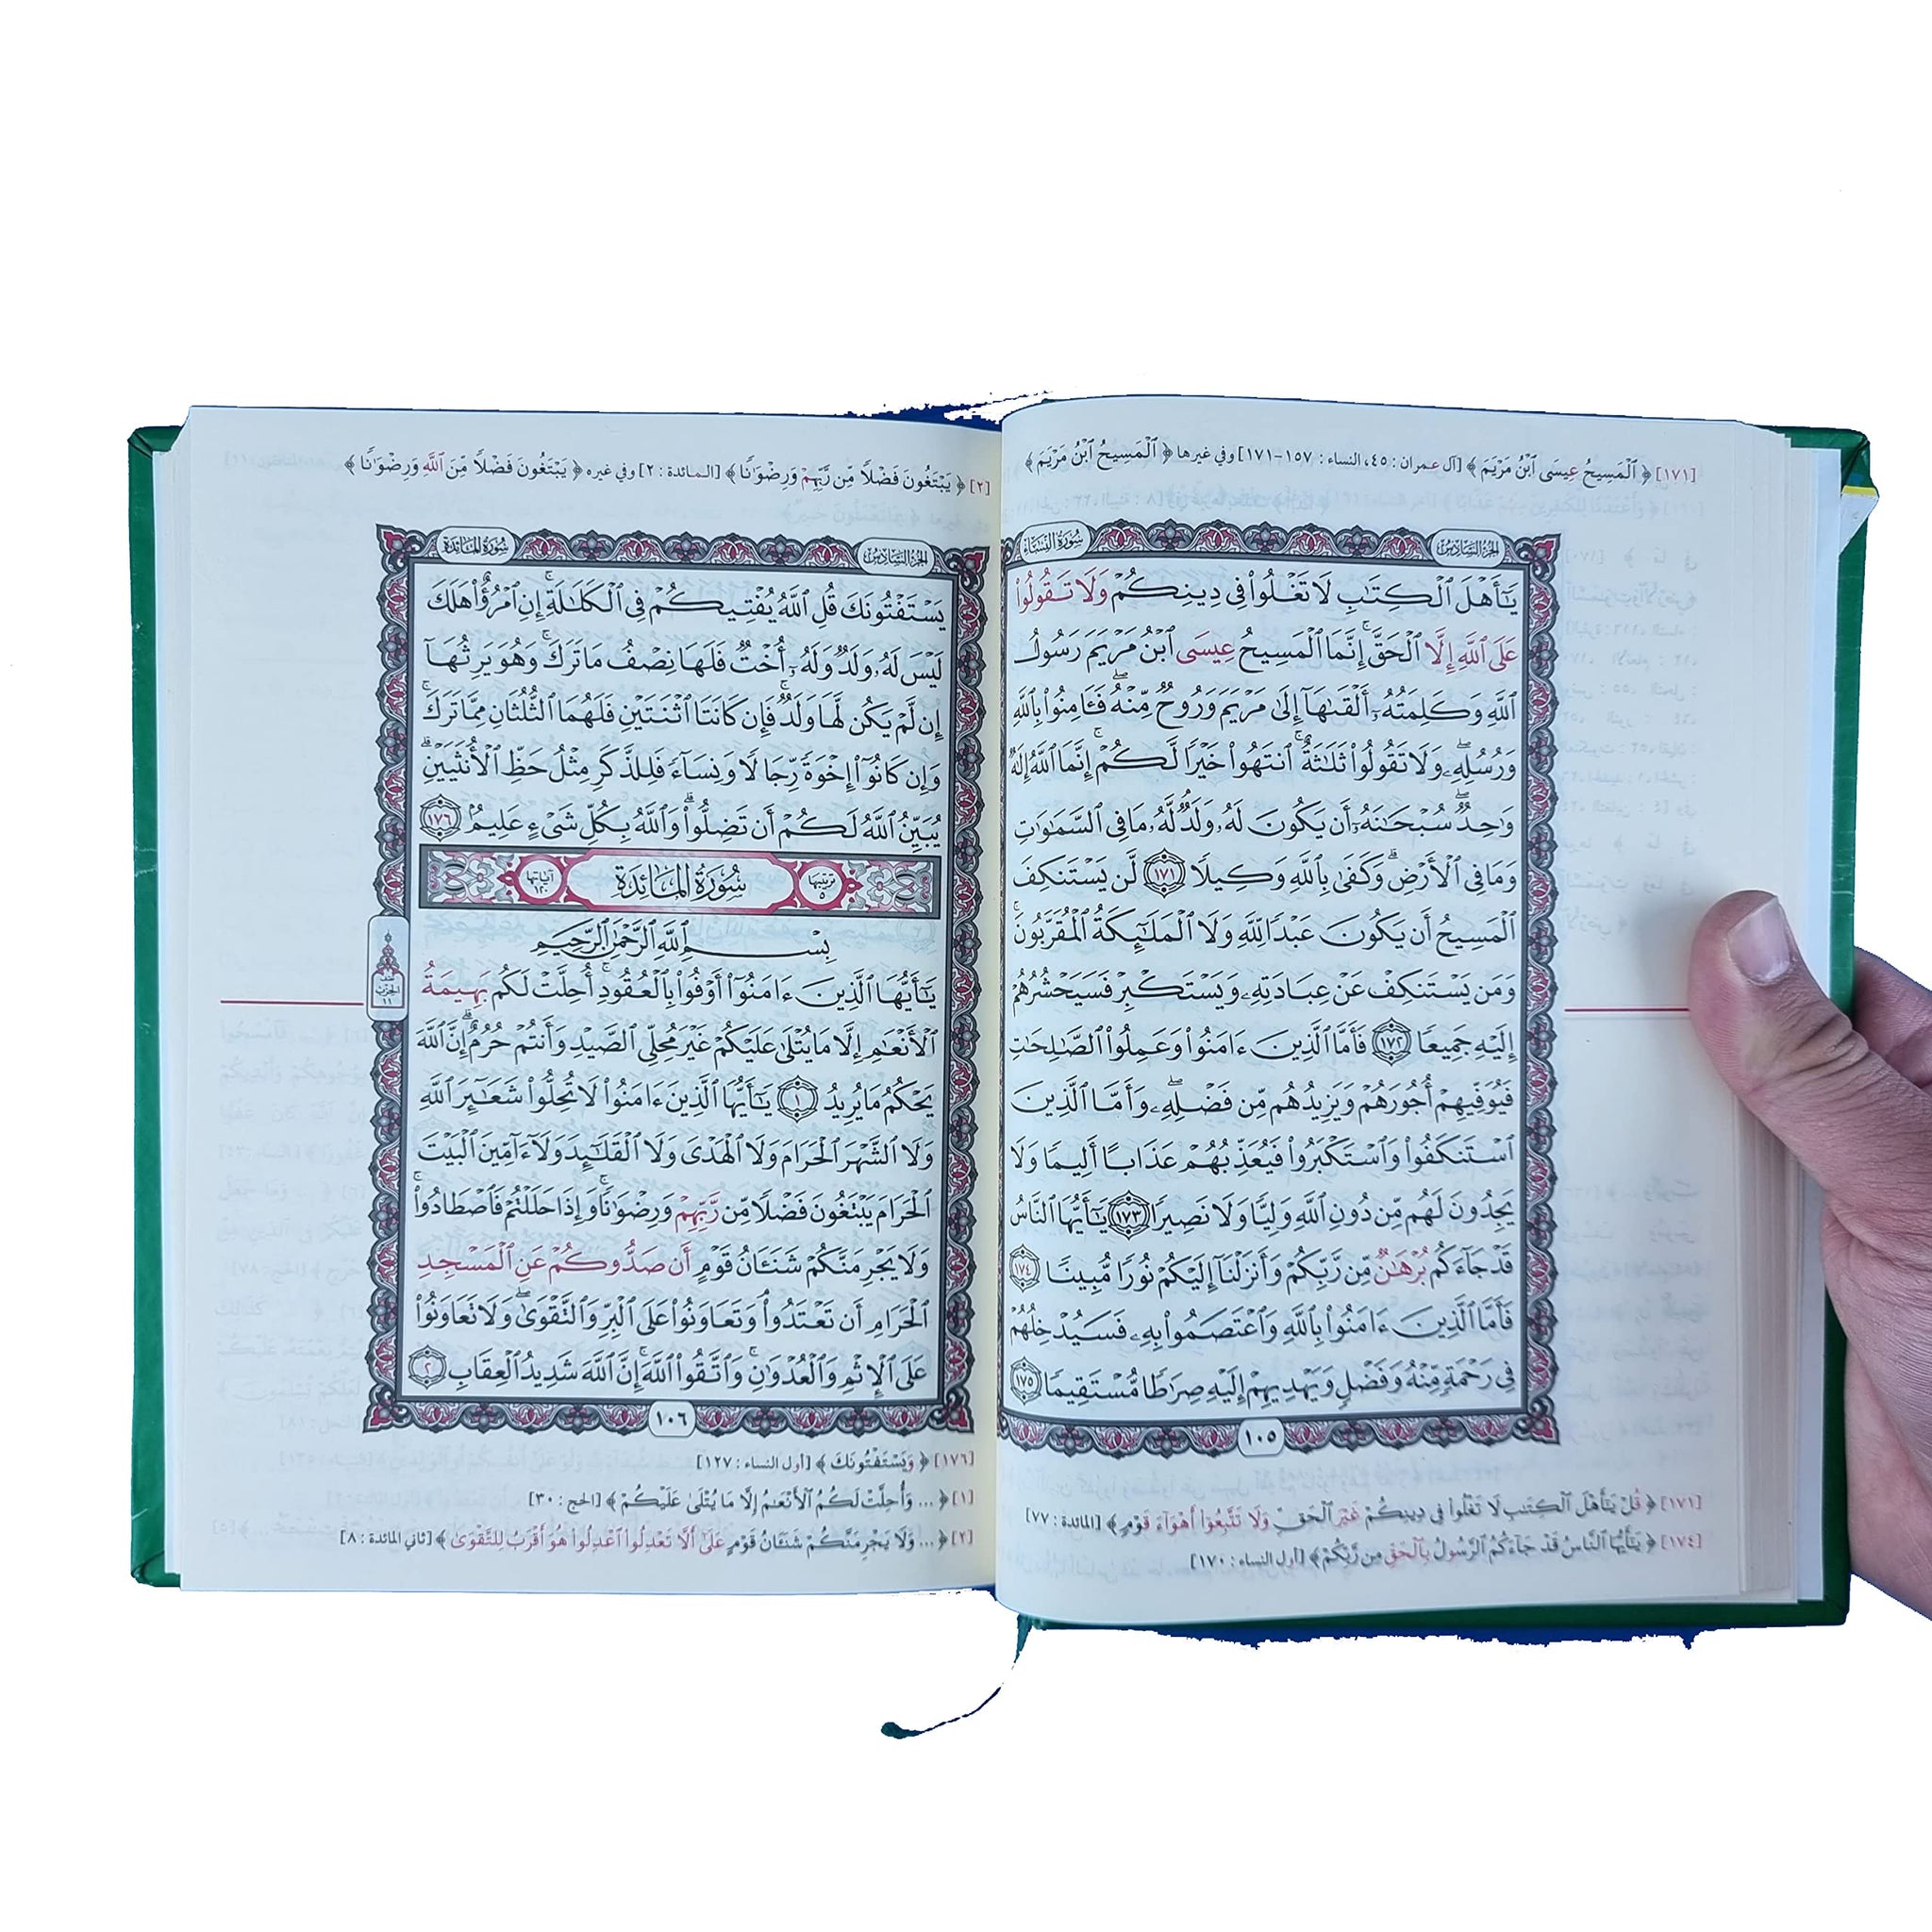 [١٧١] ﴿ ٱلْمَسِيحُ عِيسَى ٱبْنُ مَرْيَمَ ﴾ [آل عمران : ٤٥، النساء : ١٥٧-١٧١] وفي غيرها ﴿ ٱلْمَسِيحُ ٱبْنُ مَرْيَمَ ﴾
الجزء السادس
سورة النساء
يَٰٓأَهْلَ ٱلْكِتَٰبِ لَا تَغْلُوا۟ فِى دِينِكُمْ وَلَا تَقُولُوا۟
عَلَى ٱللَّهِ إِلَّا ٱلْحَقَّ ۚ إِنَّمَا ٱلْمَسِيحُ عِيسَى ٱبْنُ مَرْيَمَ رَسُولُ
ٱللَّهِ وَكَلِمَتُهُۥٓ أَلْقَىٰهَآ إِلَىٰ مَرْيَمَ وَرُوحٌ مِّنْهُ ۖ فَـَٔامِنُوا۟ بِٱللَّهِ
وَرُسُلِهِۦ ۖ وَلَا تَقُولُوا۟ ثَلَٰثَةٌ ۚ ٱنتَهُوا۟ خَيْرًا لَّكُمْ ۚ إِنَّمَا ٱللَّهُ إِلَٰهٌ
وَٰحِدٌ ۖ سُبْحَٰنَهُۥٓ أَن يَكُونَ لَهُۥ وَلَدٌ ۘ لَّهُۥ مَا فِى ٱلسَّمَٰوَٰتِ
وَمَا فِى ٱلْأَرْضِ ۗ وَكَفَىٰ بِٱللَّهِ وَكِيلًا ١٧١ لَّن يَسْتَنكِفَ
ٱلْمَسِيحُ أَن يَكُونَ عَبْدًا لِّلَّهِ وَلَا ٱلْمَلَٰٓئِكَةُ ٱلْمُقَرَّبُونَ ۚ
وَمَن يَسْتَنكِفْ عَنْ عِبَادَتِهِۦ وَيَسْتَكْبِرْ فَسَيَحْشُرُهُمْ
إِلَيْهِ جَمِيعًا ١٧٢ فَأَمَّا ٱلَّذِينَ ءَامَنُوا۟ وَعَمِلُوا۟ ٱلصَّٰلِحَٰتِ
فَيُوَفِّيهِمْ أُجُورَهُمْ وَيَزِيدُهُم مِّن فَضْلِهِۦ ۖ وَأَمَّا ٱلَّذِينَ
ٱسْتَنكَفُوا۟ وَٱسْتَكْبَرُوا۟ فَيُعَذِّبُهُمْ عَذَابًا أَلِيمًا وَلَا
يَجِدُونَ لَهُم مِّن دُونِ ٱللَّهِ وَلِيًّا وَلَا نَصِيرًا ١٧٣ يَٰٓأَيُّهَا ٱلنَّاسُ
قَدْ جَآءَكُم بُرْهَٰنٌ مِّن رَّبِّكُمْ وَأَنزَلْنَآ إِلَيْكُمْ نُورًا مُّبِينًا ١٧٤
فَأَمَّا ٱلَّذِينَ ءَامَنُوا۟ بِٱللَّهِ وَٱعْتَصَمُوا۟ بِهِۦ فَسَيُدْخِلُهُمْ
فِى رَحْمَةٍ مِّنْهُ وَفَضْلٍ وَيَهْدِيهِمْ إِلَيْهِ صِرَٰطًا مُّسْتَقِيمًا ١٧٥
١٠٥
[١٧١] ﴿ قُلْ يَٰٓأَهْلَ ٱلْكِتَٰبِ لَا تَغْلُوا۟ فِى دِينِكُمْ غَيْرَ ٱلْحَقِّ وَلَا تَتَّبِعُوٓا۟ أَهْوَآءَ قَوْمٍ ﴾ [المائدة : ٧٧]
[١٧٤] ﴿ يَٰٓأَيُّهَا ٱلنَّاسُ قَدْ جَآءَكُمُ ٱلرَّسُولُ بِٱلْحَقِّ مِن رَّبِّكُمْ ﴾ [أول النساء : ١٧٠]
[٢] ﴿ يَبْتَغُونَ فَضْلًا مِّن رَّبِّهِمْ وَرِضْوَٰنًا ﴾ [المائدة : ٢] وفي غيره ﴿ يَبْتَغُونَ فَضْلًا مِّنَ ٱللَّهِ وَرِضْوَٰنًا ﴾
الجزء السادس
سورة المائدة
يَسْتَفْتُونَكَ قُلِ ٱللَّهُ يُفْتِيكُمْ فِى ٱلْكَلَٰلَةِ ۚ إِنِ ٱمْرُؤٌا۟ هَلَكَ
لَيْسَ لَهُۥ وَلَدٌ وَلَهُۥٓ أُخْتٌ فَلَهَا نِصْفُ مَا تَرَكَ ۚ وَهُوَ يَرِثُهَآ
إِن لَّمْ يَكُن لَّهَا وَلَدٌ ۚ فَإِن كَانَتَا ٱثْنَتَيْنِ فَلَهُمَا ٱلثُّلُثَانِ مِمَّا تَرَكَ ۚ
وَإِن كَانُوٓا۟ إِخْوَةً رِّجَالًا وَنِسَآءً فَلِلذَّكَرِ مِثْلُ حَظِّ ٱلْأُنثَيَيْنِ ۗ
يُبَيِّنُ ٱللَّهُ لَكُمْ أَن تَضِلُّوا۟ ۗ وَٱللَّهُ بِكُلِّ شَىْءٍ عَلِيمٌۢ ١٧٦
ترتيبها ٥ سُورَةُ المَائدَةِ آياتها ١٢٠
بِسْمِ ٱللَّهِ ٱلرَّحْمَٰنِ ٱلرَّحِيمِ
يَٰٓأَيُّهَا ٱلَّذِينَ ءَامَنُوٓا۟ أَوْفُوا۟ بِٱلْعُقُودِ ۚ أُحِلَّتْ لَكُم بَهِيمَةُ
ٱلْأَنْعَٰمِ إِلَّا مَا يُتْلَىٰ عَلَيْكُمْ غَيْرَ مُحِلِّى ٱلصَّيْدِ وَأَنتُمْ حُرُمٌ ۗ إِنَّ ٱللَّهَ
يَحْكُمُ مَا يُرِيدُ ١ يَٰٓأَيُّهَا ٱلَّذِينَ ءَامَنُوا۟ لَا تُحِلُّوا۟ شَعَٰٓئِرَ ٱللَّهِ
وَلَا ٱلشَّهْرَ ٱلْحَرَامَ وَلَا ٱلْهَدْىَ وَلَا ٱلْقَلَٰٓئِدَ وَلَآ ءَآمِّينَ ٱلْبَيْتَ
ٱلْحَرَامَ يَبْتَغُونَ فَضْلًا مِّن رَّبِّهِمْ وَرِضْوَٰنًا ۚ وَإِذَا حَلَلْتُمْ فَٱصْطَادُوا۟ ۚ
وَلَا يَجْرِمَنَّكُمْ شَنَـَٔانُ قَوْمٍ أَن صَدُّوكُمْ عَنِ ٱلْمَسْجِدِ
ٱلْحَرَامِ أَن تَعْتَدُوا۟ ۘ وَتَعَاوَنُوا۟ عَلَى ٱلْبِرِّ وَٱلتَّقْوَىٰ ۖ وَلَا تَعَاوَنُوا۟
عَلَى ٱلْإِثْمِ وَٱلْعُدْوَٰنِ ۚ وَٱتَّقُوا۟ ٱللَّهَ ۖ إِنَّ ٱللَّهَ شَدِيدُ ٱلْعِقَابِ ٢
نصف
الحزب
١١
١٠٦
[١٧٦] ﴿ وَيَسْتَفْتُونَكَ ﴾ [أول النساء : ١٢٧]
[١] ﴿ ... وَأُحِلَّتْ لَكُمُ ٱلْأَنْعَٰمُ إِلَّا مَا يُتْلَىٰ عَلَيْكُمْ ﴾ [الحج : ٣٠]
[٢] ﴿ ... وَلَا يَجْرِمَنَّكُمْ شَنَـَٔانُ قَوْمٍ عَلَىٰٓ أَلَّا تَعْدِلُوا۟ ٱعْدِلُوا۟ هُوَ أَقْرَبُ لِلتَّقْوَىٰ ﴾ [ثاني المائدة : ٨]